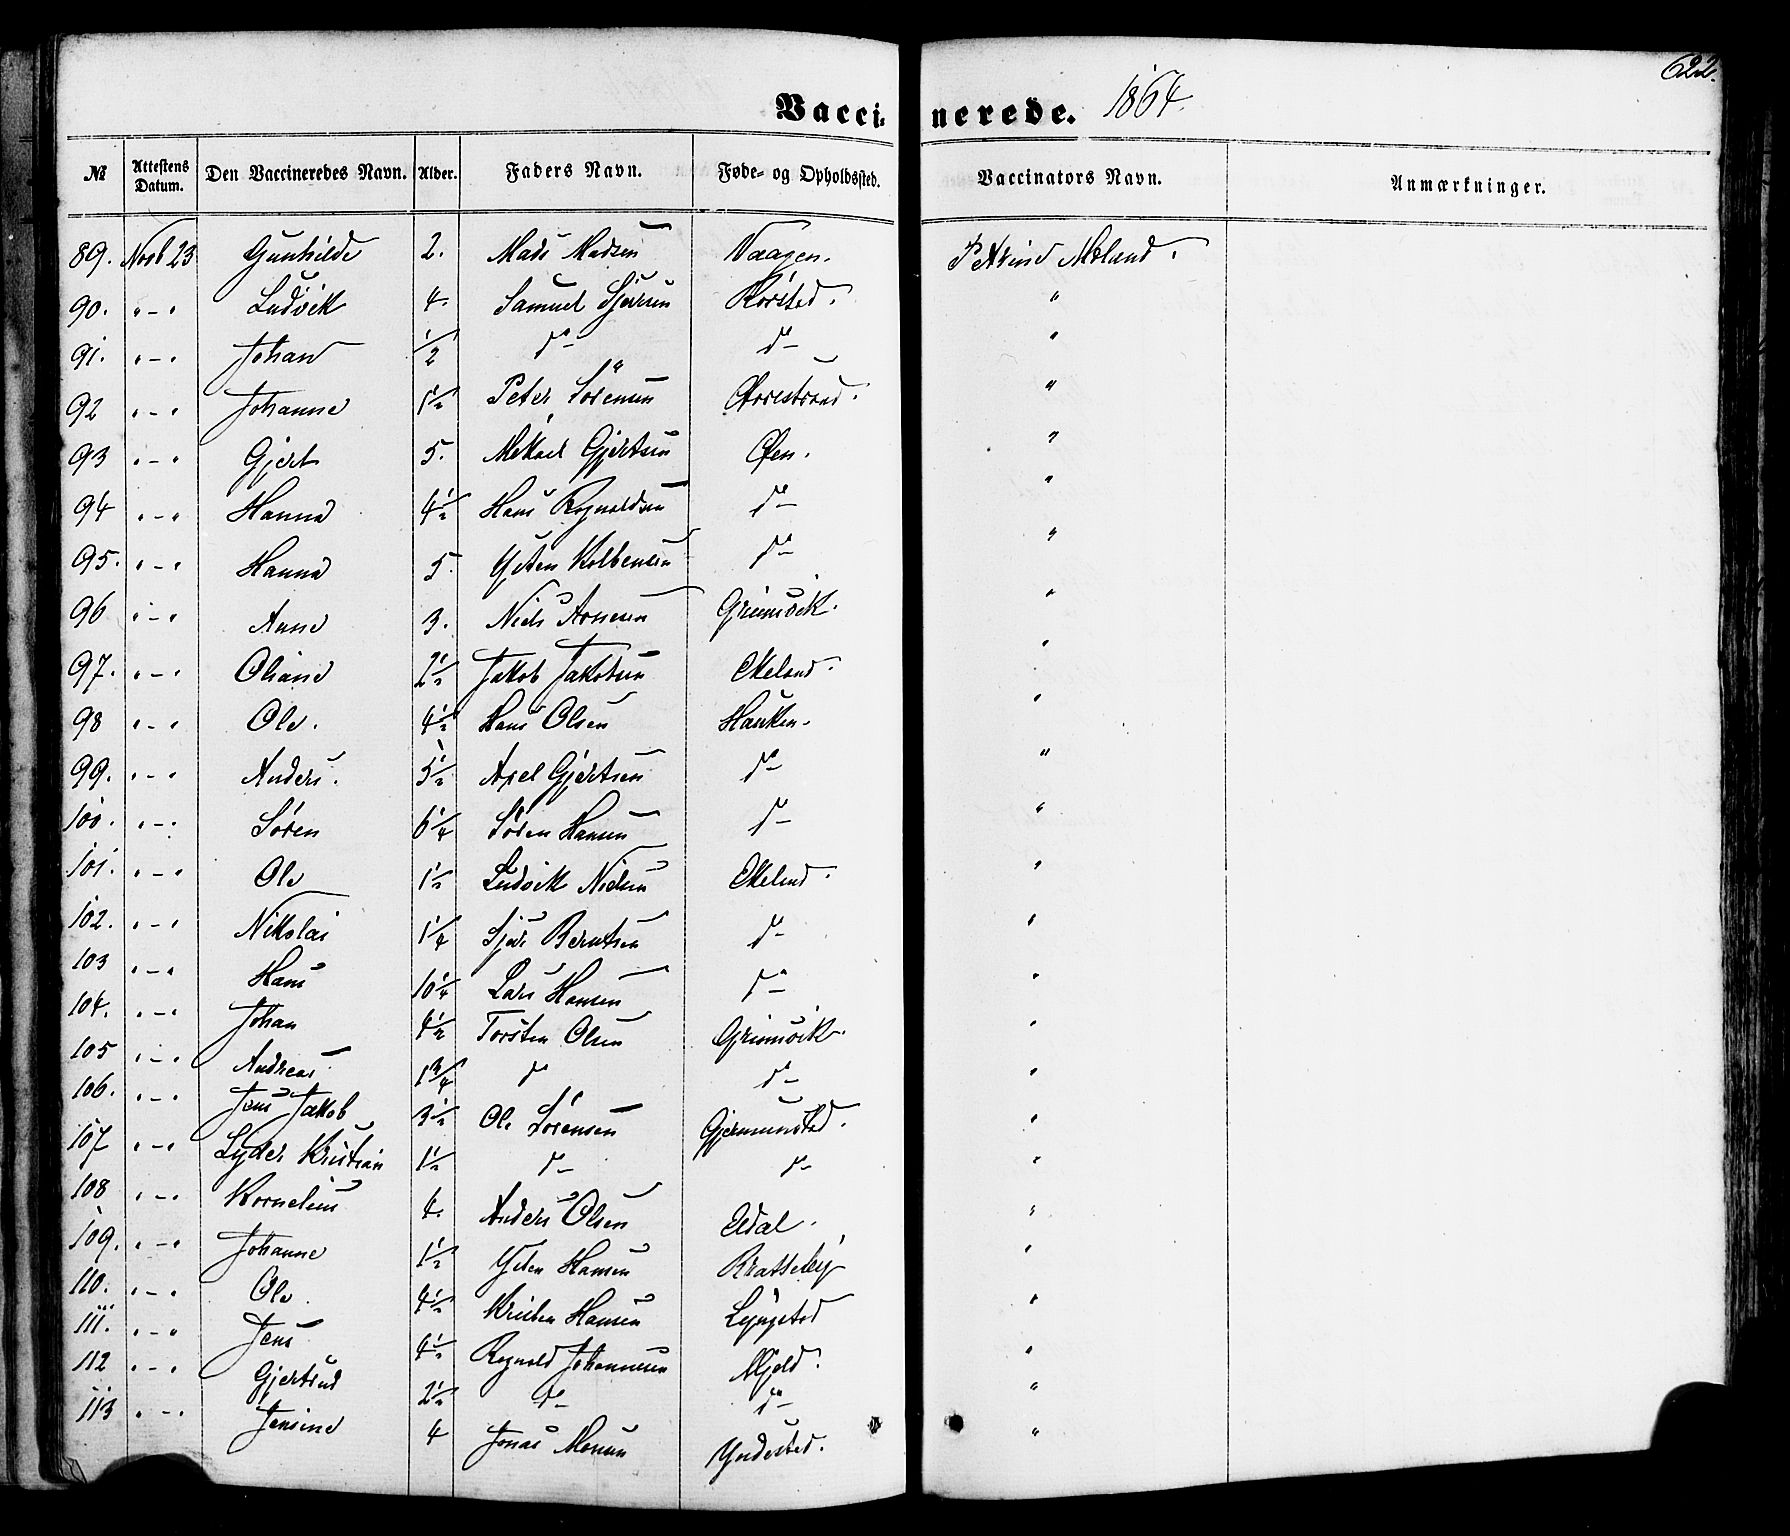 622.
Vaccinerede. 1864.
№ Attestens Datum. Den Vaccineredes Navn. Alder. Faders Navn. Føde- og Opholdssted. Vaccinators Navn. Anmærkninger.
89. Novb 23 Gunhilde 2. Mads Madsen Vaagen. Petrine Meland.
90. " - " Ludvik 4. Samuel Sjursen Rørsted. "
91. " - " Johan 1/2 d° - d° - "
92 " - " Johanne 1 1/2 Peter Sörensen "
93 " - " Gjert 5. Mikael Gjertsen Øen. "
94 " - " Hanna 4 1/2 Hans Rognaldsen d° - "
95. " - " Hanna 5. Kolbensen d° - "
96 " - " Anne 3. Niels Arnesen Grimsvik. "
97. " - " Oliane 2 1/2 Jakob Jakobsen Ekeland. "
98 " - " Ole. 4 1/2 Hans Olsen Hauken. "
99. " - " Anders. 5 1/2 Axel Gjertsen d° - "
100. " - " Søren 6 1/4 Søren Hansen d° - "
101. " - " Ole 1 1/2 Ludvik Nielsen Ekeland. "
102. " - " Nikolai 1 1/4 Sjur Berntsen d° - "
103 " - " Hans 10 1/4 Lars Hansen d° - "
104. " - " Johan 4 1/2 Torsten Olsen Grimsvik. "
105 " - " Andreas 1 3/4 d° d° - "
106. " - " Jens Jakob 3 1/2 Ole Sörensen Gjermunsted. "
107 " - " Lyder Kristian 1 1/2 d° - d° - "
108 " - " Kornelius 4. Anders Olsen Udal. "
109. " - " Johanne 1 1/2 Hansen Bratseby "
110. " - " Ole. 4 1/2 Hansen Lyngsted "
111. " - " Jens 4 1/2 Rognald Johannesen Mjeld. "
112 " - " Gjertrud 2 1/2 d° - d° - "
113 " - " Jensine 4 Jonas Monsen Yndested. "